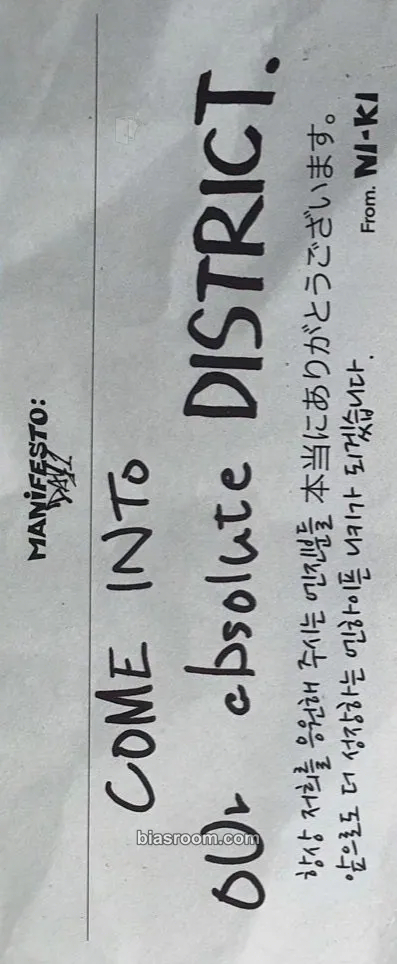 MANiFESTO:
DAY 1
COME INTO
OUr absolute DISTRICT.
항상 저희를 응원해 주시는 엔진분들 本当にありがとうございます。
앞으로도 더 성장하는 엔하이픈 니키가 되겠습니다.
From. NI-KI
biasroom.com